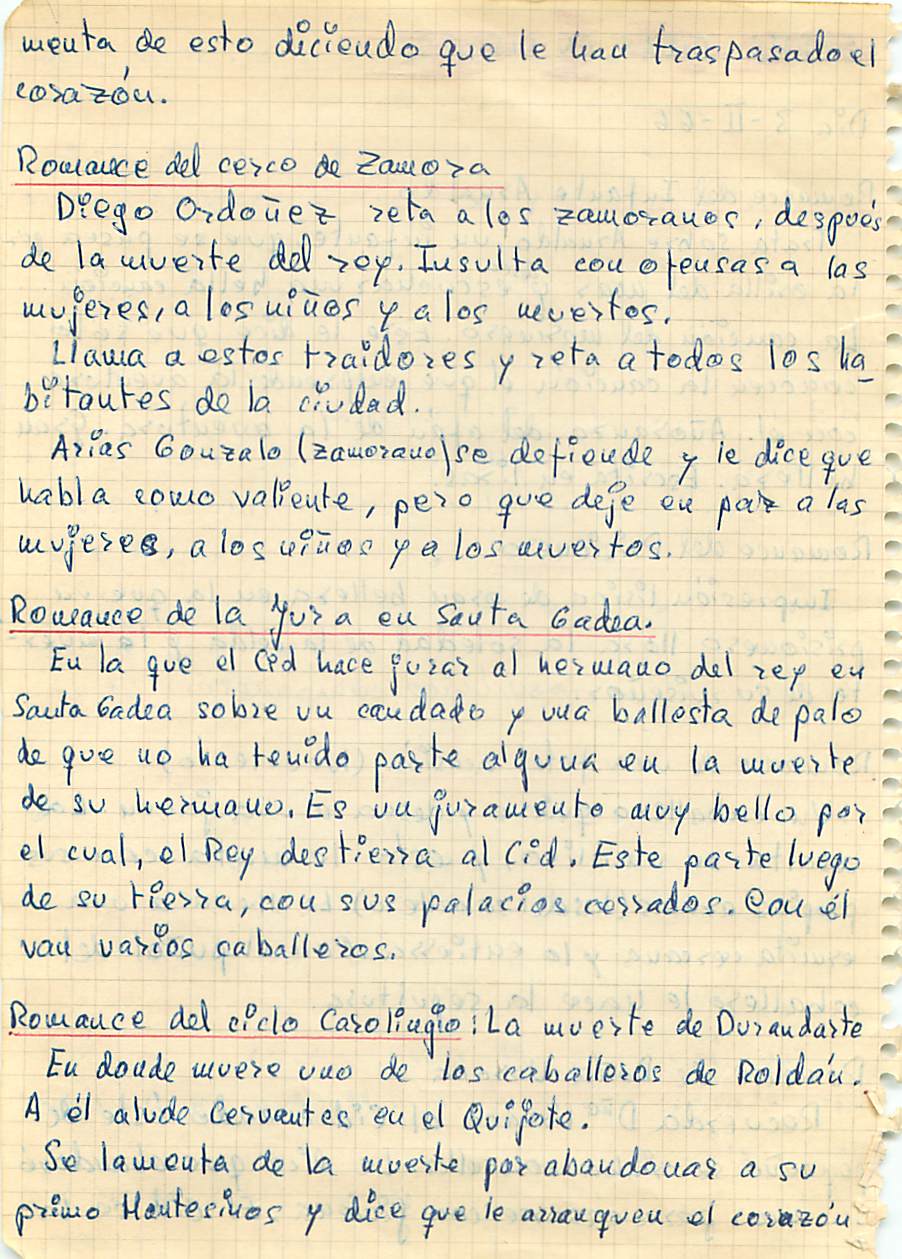 menta de esto diciendo que le han traspasado el
corazón.
Romance del cerco de Zamora
Diego Ordoñez reta a los zamoranos, después
de la muerte del rey. Insulta con ofensas a las
mujeres, a los niños y a los muertos.
Llama a estos traidores y reta a todos los ha_
bitantes de la ciudad.
Arias Gonzalo (zamorano) se defiende y le dice que
habla como valiente, pero que deje en paz a las
mujeres, a los niños y a los muertos.
Romance de la Jura en Santa Gadea.
En la que el Cid hace jurar al hermano del rey en
Santa Gadea sobre un candado y una ballesta de palo
de que no ha tenido parte alguna en la muerte
de su hermano. Es un juramento muy bello por
el cual, el Rey destierra al Cid. Este parte luego
de su tierra, con sus palacios cerrados. Con él
van varios caballeros.
Romance del ciclo Carolingio: La muerte de Durandarte
En donde muere uno de los caballeros de Roldán.
A él alude Cervantes en el Quijote.
Se lamenta de la muerte por abandonar a su
primo Montesinos y dice que le arranquen el corazón